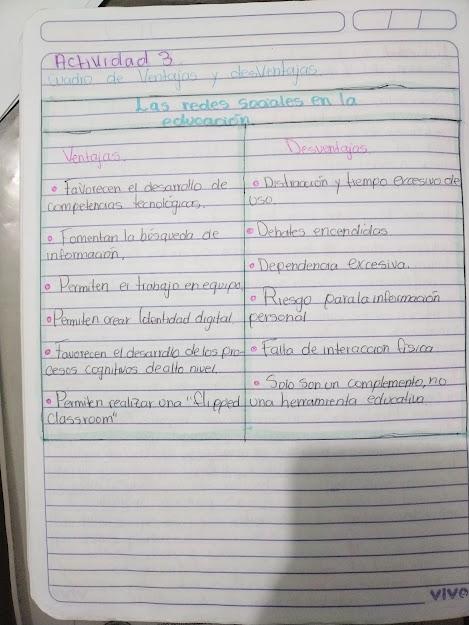 Actividad 3
Cuadro de Ventajas y desventajas
Las redes sociales en la
educación
Ventajas.
• Favorecen el desarrollo de
competencias tecnológicas.
• Fomentan la búsqueda de
información.
• Permiten el trabajo en equipo
• Permiten crear Identidad digital
• Favorecen el desarrollo de los pro-
cesos cognitivos de alto nivel.
• Permiten realizar una "flipped
classroom"
Desventajas
• Distracción y tiempo excesivo de
uso.
• Debates encendidos
• Dependencia excesiva.
• Riesgo para la información
personal
• Falta de interaccion física
• Solo son un complemento, no
una herramienta educativa
vivo